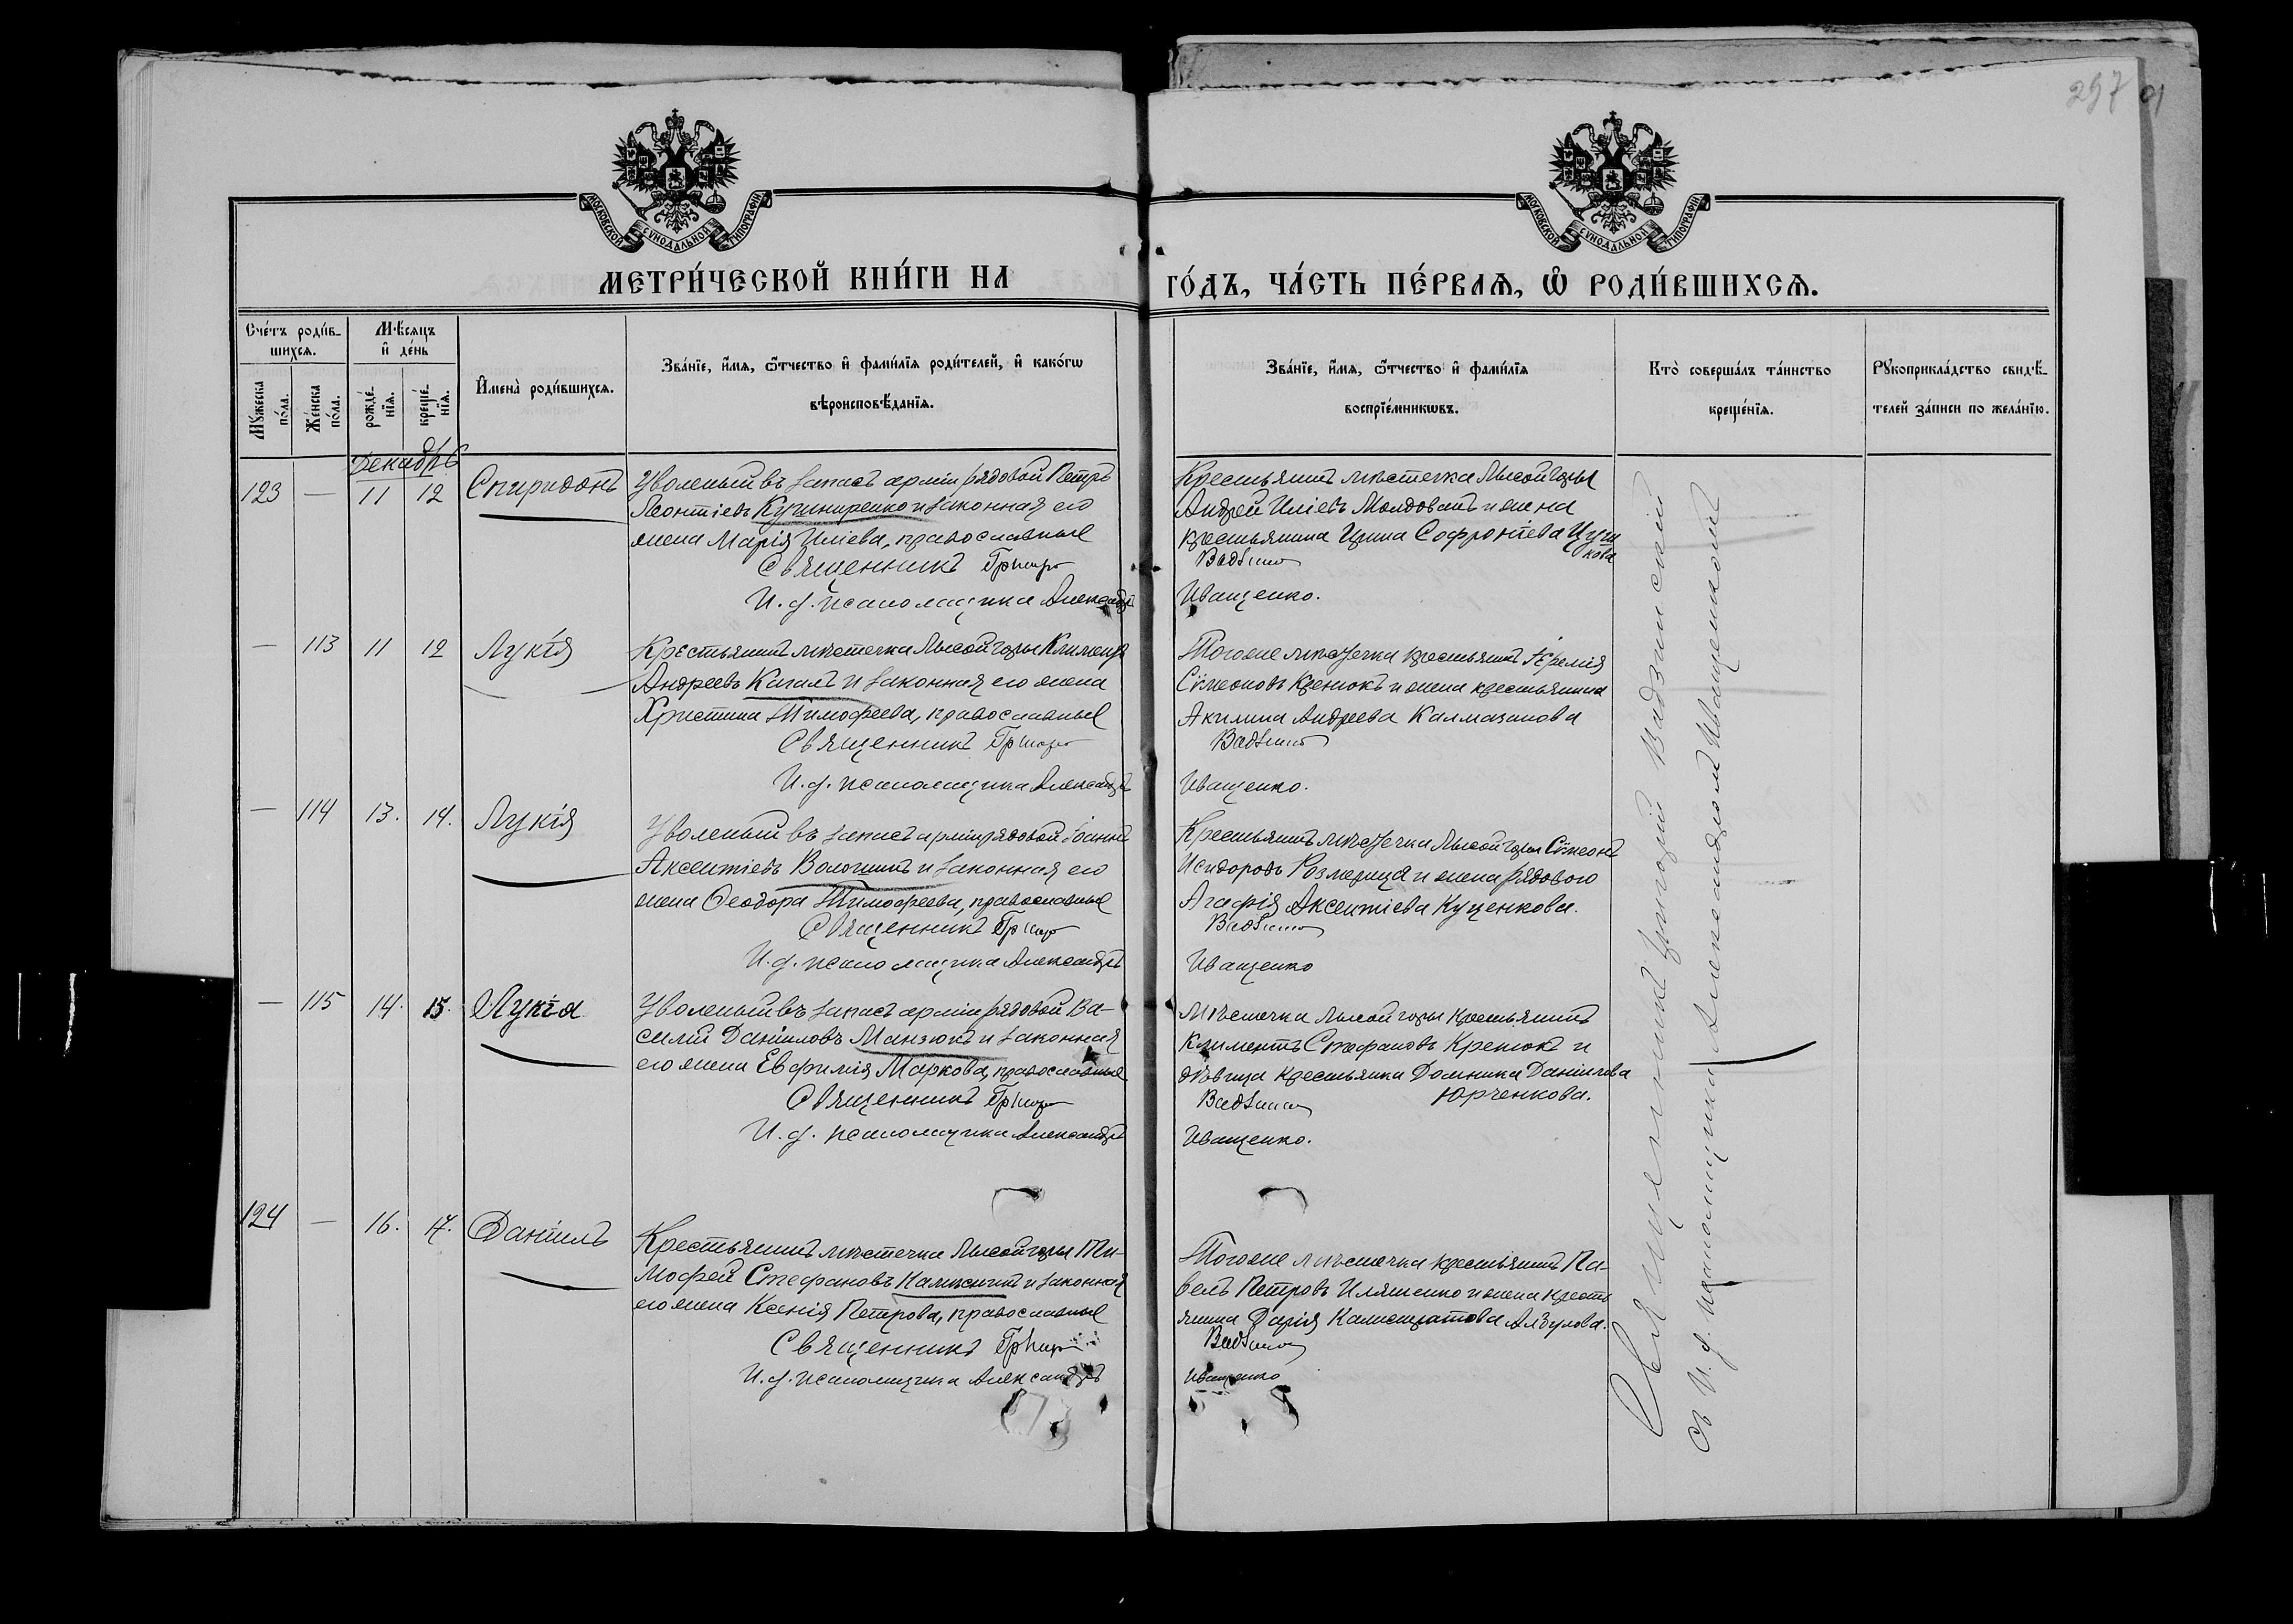 297
МОСКОВСКОЙ СѴНОДАЛЬНОЙ ТИПОГРАФІИ
МОСКОВСКОЙ СѴНОДАЛЬНОЙ ТИПОГРАФІИ
МЕТРИ́ЧЕСКОЙ КНИ́ГИ НА
ГО́ДЪ, ЧА́СТЬ ПЕ́РВАѦ, Ѡ҆ РОДИ́ВШИХСѦ.
Сче́тъ роди́в-
шихсѧ.
Мꙋ́жеска по́ла.
Же́нска по́ла.
Мѣ́сѧцъ
и҆ де́нь
рожде́-
нїѧ.
креще́-
нїѧ.
И҆мена̀ роди́вшихсѧ.
Зва́нїе, и҆́мѧ, ѻ҆́тчество и҆ фами́лїѧ роди́телей, и҆ како́гѡ
вѣроисповѣ́данїѧ.
Зва́нїе, и҆́мѧ, ѻ҆́тчество и҆ фами́лїѧ
воспрїе́мникѡвъ.
Кто̀ соверша́лъ та́инство
креще́нїѧ.
Рꙋкоприкла́дство свидѣ́-
телей за́писи по жела́нїю.
Декабрь
123 — 11 12 Спиридонъ
Уволеный въ запасъ арміи рядовой Петръ
Леонтіевъ Кушниренко и законная его
жена Марія Иліева, православные
Священникъ Григорій
И. д. псаломщика Александръ
Крестьянинъ мѣстечка Лысой горы
Андрей Иліевъ Молдованъ и жена
крестьянина Ирина Софроніева Цуш
кова
Вадзинскій
Иващенко.
— 113 11 12 Лукія
Крестьянинъ мѣстечка Лысой горы Климентъ
Андреевъ Качанъ и законная его жена
Христина Тимофеева, православные
Священникъ Григорій
И. д. псаломщика Александръ
Тогоже мѣстечка крестьянинъ Іеремія
Сѵмеоновъ Кренюкъ и жена крестьянина
Акилина Андреева Калмазанова
Вадзинскій
Иващенко.
— 114 13. 14. Лукія
Уволеный въ запасъ арміи рядовой Іоаннъ
Аксентіевъ Волошинъ и законная его
жена Ѳеодора Тимофеева, православные
Священникъ Григорій
И. д. псаломщика Александръ
Крестьянинъ мѣстечка Лысой горы Сѵмеонъ
Исидоровъ Розмерица и жена рядового
Агафія Аксентіева Куценкова.
Вадзинскій
Иващенко
— 115 14. 15. Лукія
Уволеный въ запасъ арміи рядовой Ва-
силій Даніиловъ Манзюкъ и законная
его жена Евфимія Маркова, православные
Священникъ Григорій
И. д. псаломщика Александръ
Мѣстечка Лысой горы крестьянинъ
Климентъ Стефановъ Кренюкъ и
дѣвица крестьянка Домника Даніилова
Юрченкова.
Вадзинскій
Иващенко.
124 — 16. 17. Даніилъ
Крестьянинъ мѣстечка Лысой горы Ти-
мофей Стефановъ и законная
его жена Ксенія Петрова, православные
Священникъ Григорій
И. д. псаломщика Александръ
Тогоже мѣстечка крестьянинъ Па-
велъ Петровъ Иляшенко и жена кресть
янина Дарія Калистратова
Вадзинскій
Иващенко
Священникъ Григорій Вадзинскій
съ И. д. псаломщика Александромъ Иващенкомъ